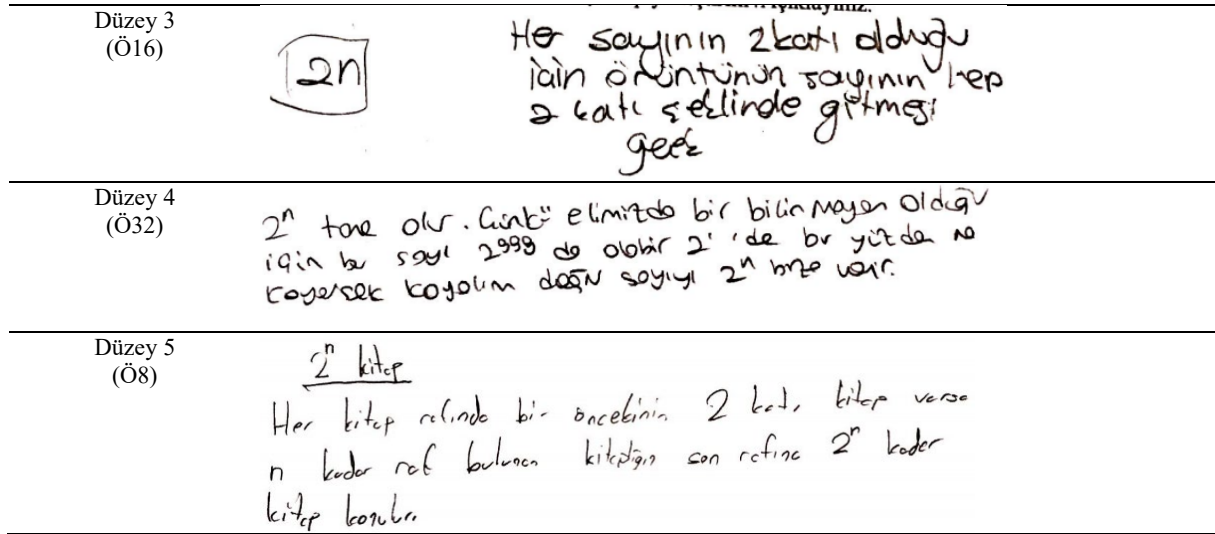 Düzey 3
(Ö16)
2n
Her sayının 2 katı olduğu
için örüntünün sayının hep
2 katı şeklinde gitmesi
gerek
Düzey 4
(Ö32)
2ⁿ tane olur. Çünkü elimizde bir bilinmeyen olduğu
için bu sayı 2⁹⁹⁹ da olabilir 2¹ 'de bu yüzden ne
koyarsak koyalım doğru sayıyı 2ⁿ bize verir.
Düzey 5
(Ö8)
2ⁿ kitap
Her kitap rafında bir öncekinin 2 katı kitap varsa
n kadar raf bulunan kitaplığın son rafına 2ⁿ kadar
kitap konulur.